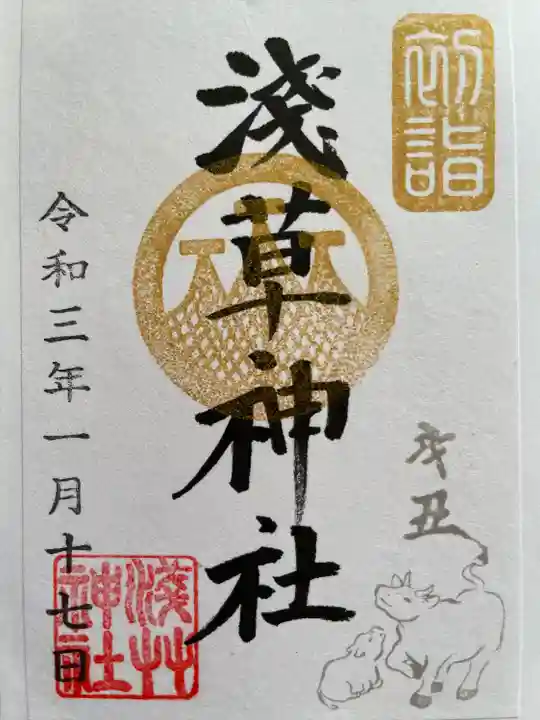 初詣
淺草神社
令和三年一月十七日
辛丑
淺草神社